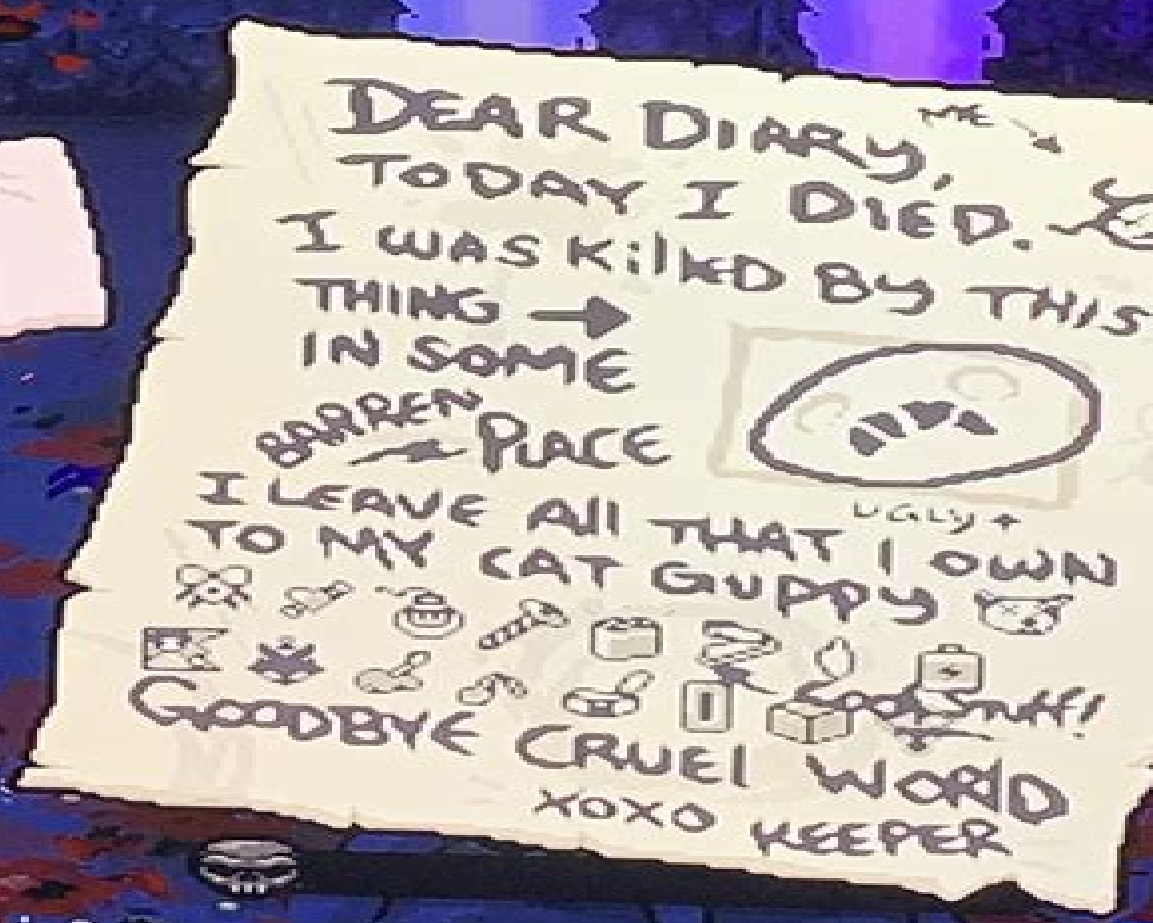 DEAR DIARY,
ME
TODAY I DIED.
I WAS KillED BY THIS
THING →
IN SOME
BARREN PLACE
UGLY
I LEAVE All THAT I OWN
TO MY CAT GUPPY
Good Stuff!
GOODBYE CRUEl WORlD
XOXO KEEPER